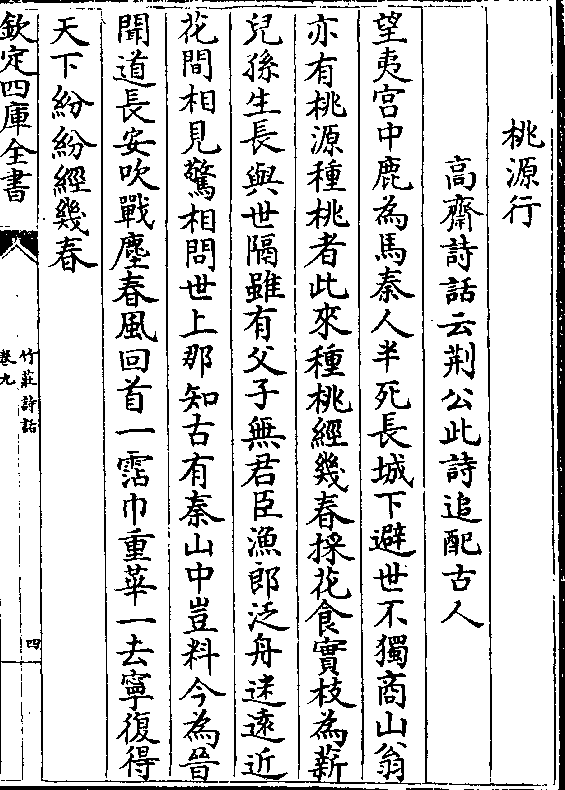 桃源行
高齋詩話云荆公此詩追配古人
望夷宫中鹿為馬秦人半死長城下避世不獨商山翁
亦有桃源種桃者此來種桃經幾春採花食實枝為薪
兒孫生長與世隔雖有父子無君臣漁郎泛舟迷遠近
花間相見驚相問世上那知古有秦山中豈料今為晉
聞道長安吹戰塵春風回首一霑巾重華一去寧復得
天下紛紛經幾春
欽定四庫全書
竹莊詩話
卷九
四